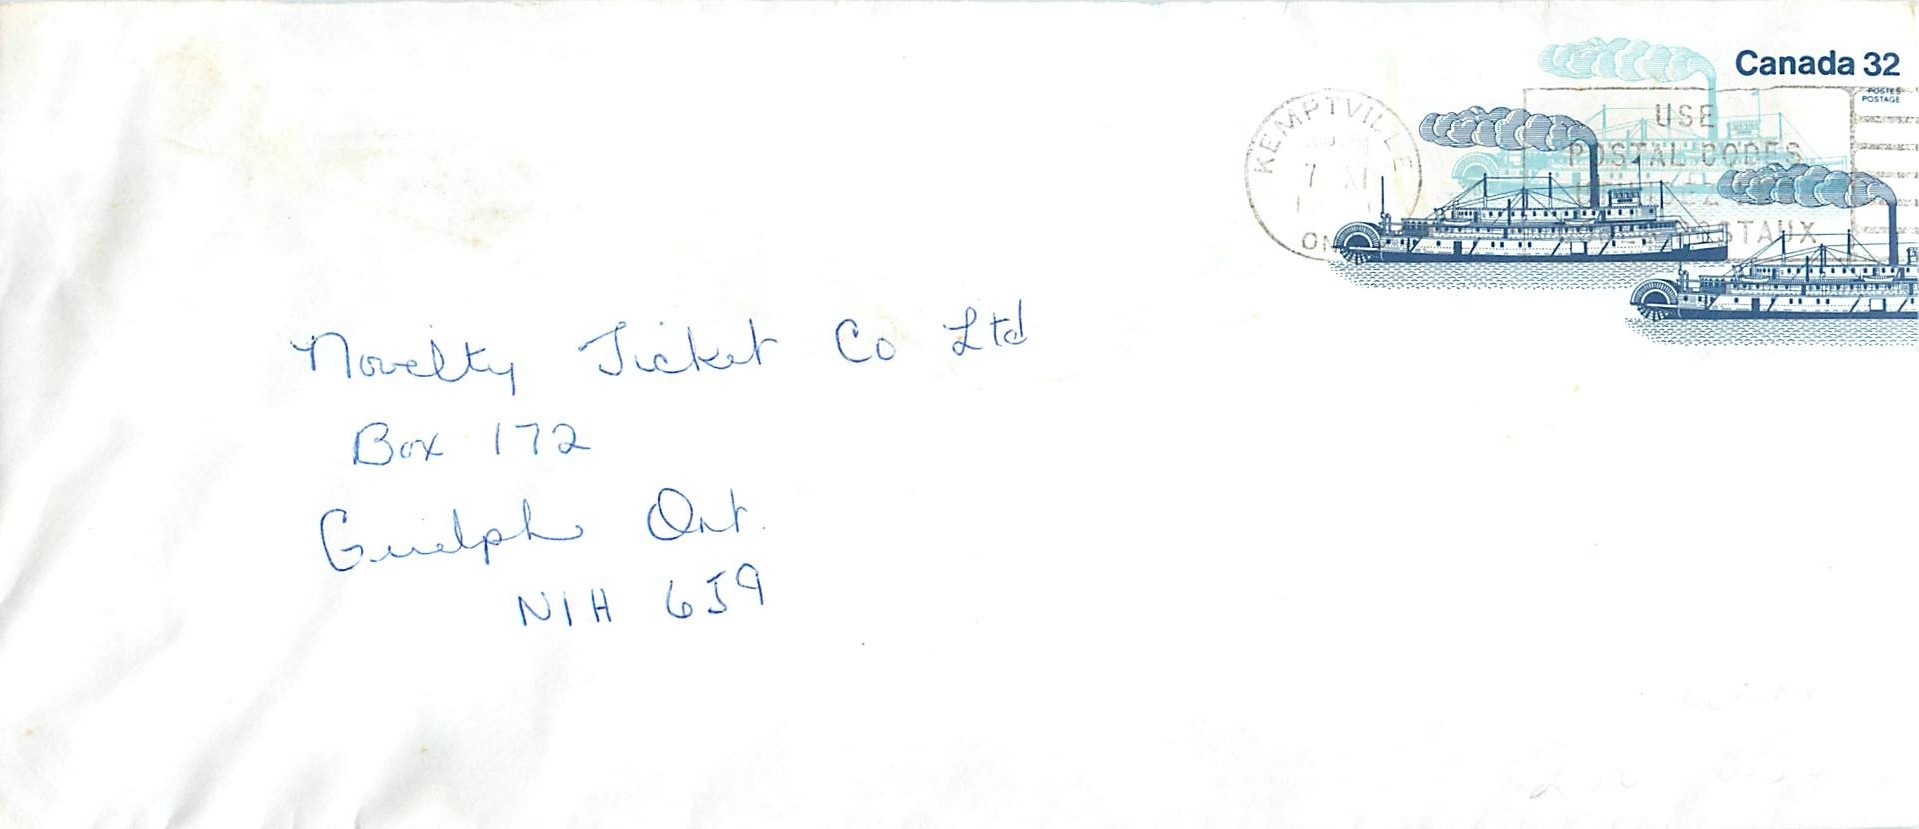 Canada 32
POSTES
POSTAGE
KEMPTVILLE
7 XI
ON
USE
POSTAL CODES
POSTAUX
Novelty Ticket Co Ltd
Box 172
Guelph Ont.
N1H 6J9